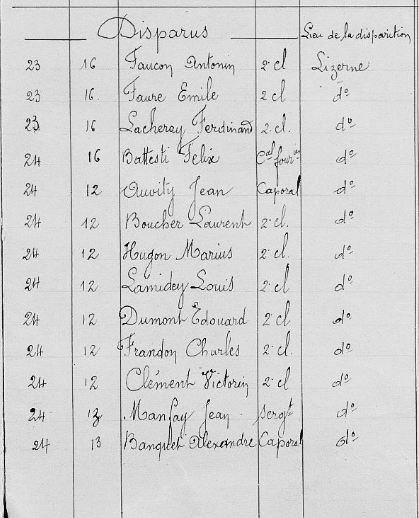 Disparus Lieu de la disparition
23 16 Faucon Antonin 2e cl Lizerne
23 16 Faure Emile 2 cl do
23 16 Lacheray Ferdinand 2 cl. do
24 16 Battesti Felix Cal fourer do
24 12 Auvity Jean Caporal do
24 12 Boucher Laurent 2e cl. do
24 12 Hugon Marius 2e cl. do
24 12 Lamidey Louis 2e cl do
24 12 Dumont Edouard 2e cl do
24 12 Frandon Charles 2e cl. do
24 12 Clément Victorin 2e cl do
24 13 Manfay Jean sergt do
24 13 Banquet Alexandre Caporal do